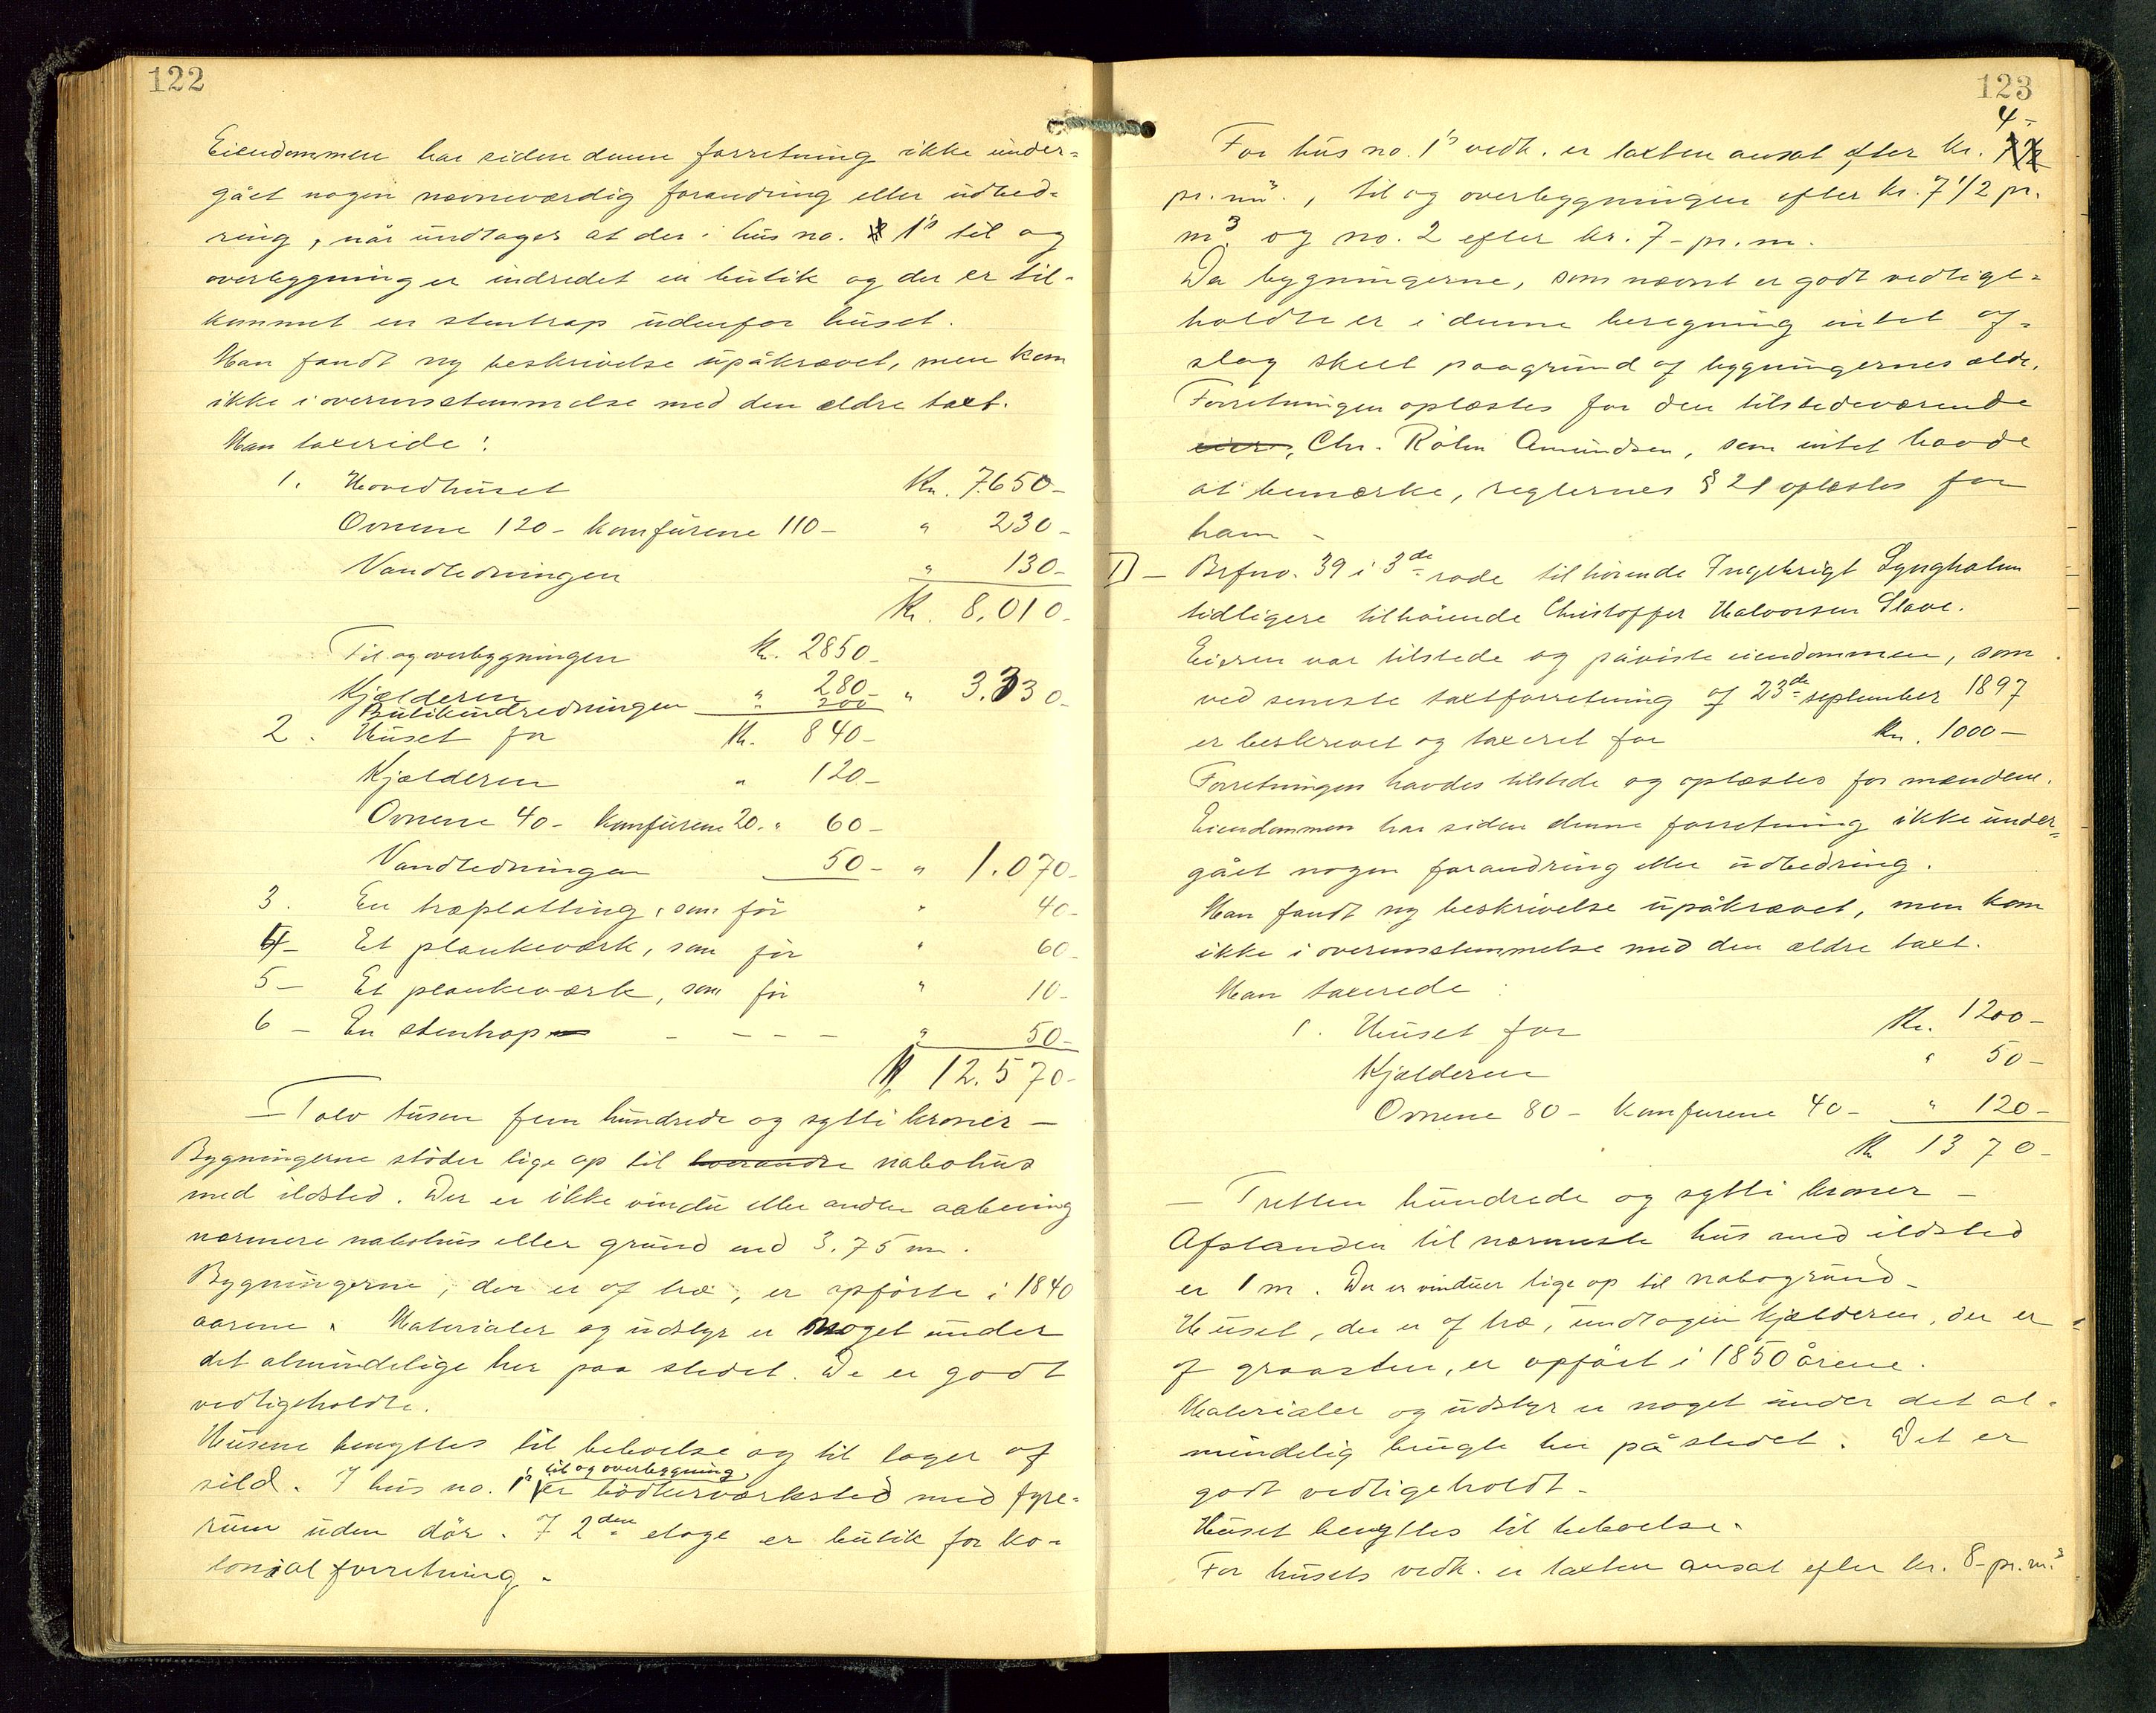 122
Eiendommen har siden denne forretning ikke under-
gået nogen nævneværdig forandring eller udbed-
ring, når undtages at der i hus no. 1's til og
overbygning er indredet en butik og der er til-
kommet en stentrap udenfor huset.
Man fandt ny beskrivelse upåkrævet, men kom
ikke i overensstemmelse med den ældre taxt.
Man taxeride:
1. Hovedhuset Kr. 7650-
Ovnene 120- Komfurene 110- " 230-
Vandledningen " 130-
Kr. 8.010-
Til og overbygningen Kr. 2850-
Kjælderen " 280-
Butikindredningen " 200 " 3.330-
2. Huset for Kr. 840-
Kjælderen " 120-
Ovnene 40- Komfurene 20- " 60-
Vandledningen 50- " 1.070-
3. En træplatting, som før " 40-
4- Et plankeværk, som før " 60-
5- Et plankeværk, som før " 10-
6- En stentrap - - - - " 50-
Kr 12.570-
- Tolv tusen fem hundrede og sytti kroner -
Bygningerne støder lige op til hverandre nabohus
med ildsted. Der er ikke vindu eller anden aabning
nærmere nabohus eller grund end 3.75 m.
Bygningerne, der er af træ, er opførte i 1840
aarene. Materialer og udstyr er noget under
det almindelige her paa stedet. De er godt
vedligeholdte.
Husene benyttes til beboelse og til lager af
sild. I hus no. 1's til og overbygning, er bødkerværksted med fyre-
rum uden dør. I 2den etage er butik for ko-
lonial forretning.
123
4-
For hus no. 1's vedk. er taxten ansat efter kr. 7 1/2
pr. m3., til og overbygningen efter kr. 7 1/2 pr.
m3 og no. 2 efter kr. 7- pr. m.
Da bygningerne, som nævnt er godt vedlige-
holdte er i denne beregning intet af-
slag skeet paagrund af bygningernes ælde.
Forretningen oplæstes for den tilstedeværende
eier, Chr. Røhn Amundsen, som intet havde
at bemærke, reglernes § 21 oplæstes for
ham -
I) - Brfno. 39 i 3de rode tilhørende Ingebrigt Lyngholm
tidligere tilhørende Christoffer Halvorsen Slave.
Eieren var tilstede og påviste eiendommen, som
ved seneste taxtforretning af 23de september 1897
er beskrevet og taxeret for Kr. 1000-
Forretningen havdes tilstede og oplæstes for mændene.
Eiendommen har siden denne forretning ikke under-
gået nogen forandring eller udbedring.
Man fandt ny beskrivelse upåkrævet, men kom
ikke i overensstemmelse med den ældre taxt.
Man taxerede:
1. Huset for Kr. 1200-
Kjælderen " 50-
Ovnene 80- Komfurene 40- " 120-
Kr 1370-
- Tretten hundrede og sytti kroner -
Afstanden til nærmeste hus med ildsted
er 1 m. Der er vinduer lige op til nabogrund-
Huset, der er af træ, undtagen kjælderen, der er
af graasten, er opført i 1850 årene.
Materialer og udstyr er noget under det al-
mindelig brugte her på stedet. Det er
godt vedligeholdt-
Huset benyttes til beboelse.
For husets vedk. er taxten ansat efter kr. 8- pr. m.3